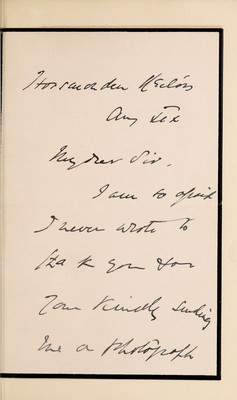 My dear Sir.
I am so afraid
I never wrote to
thank you for
Your kindly sending
me a Photograph